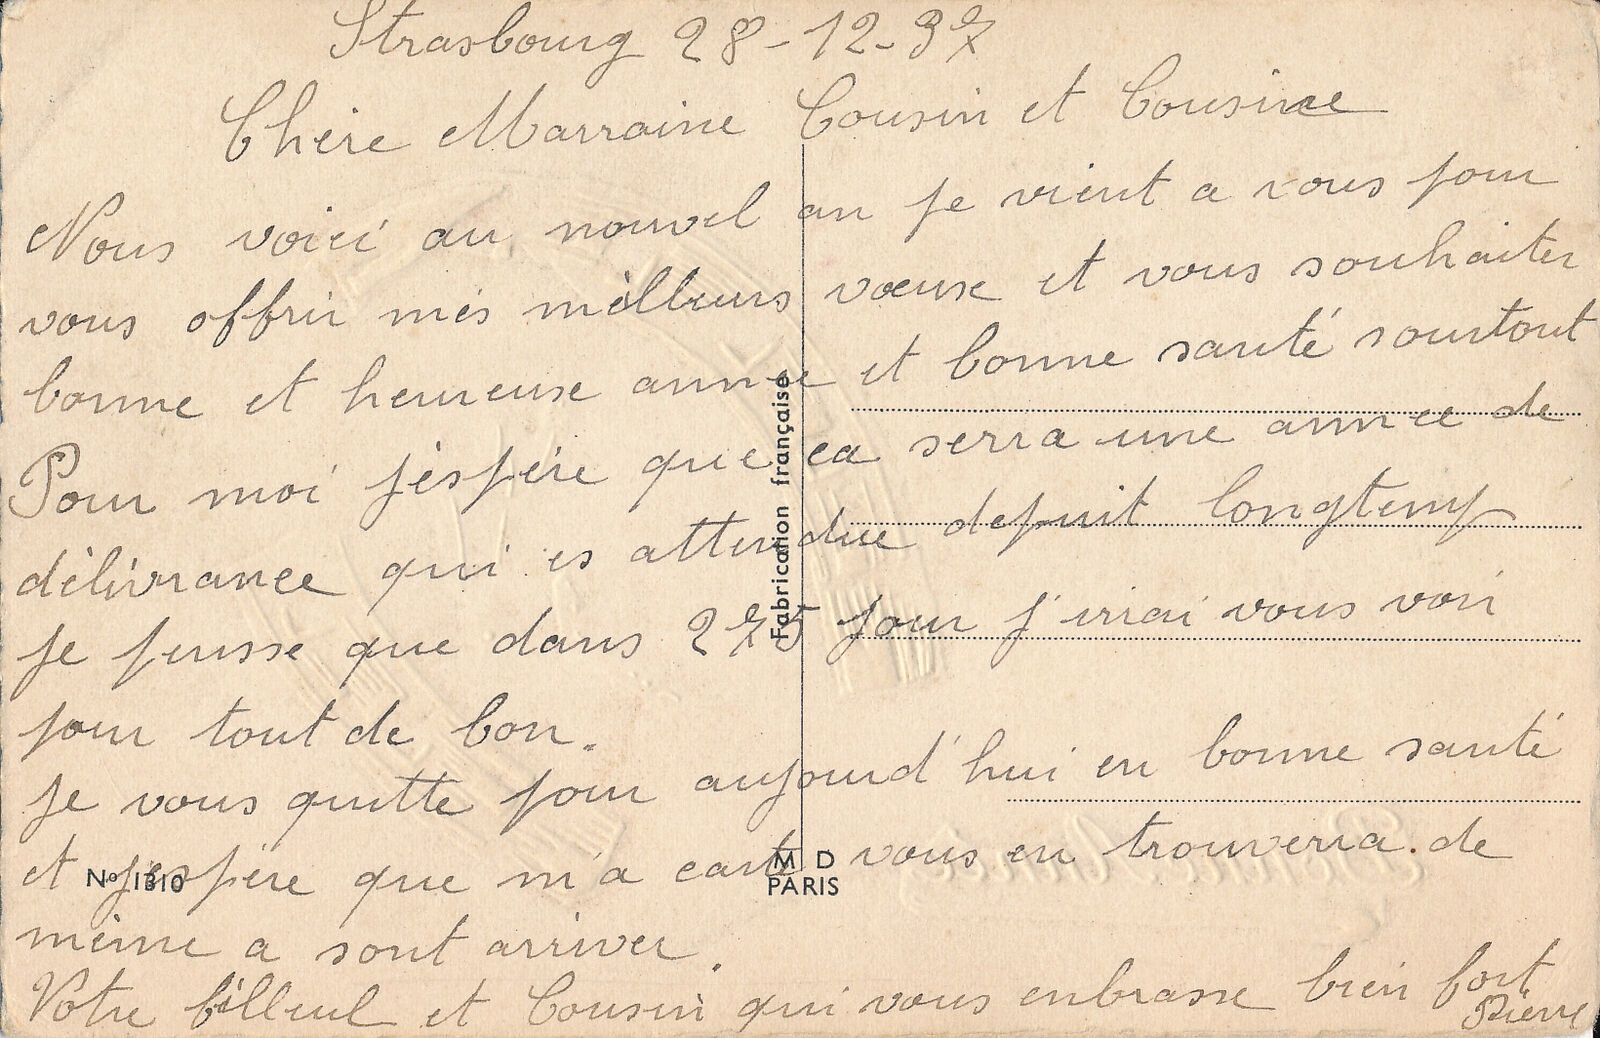 Strasbourg 28-12-37
Chère Marraine Cousin et Cousine
Nous voici au nouvel an je vient a vous pour
vous offrir mes meilleurs voeuse et vous souhaiter
bonne et heureuse année et bonne santé sourtout
Pour moi j'éspére que ca serra une annee de
délivrance qui es attendue depuit longtemp
je pensse que dans 275 jour j'irrai vous voir
pour tout de bon.
je vous quitte pour aujourd'hui en bonne santé
et j'espére que m'a carte vous en trouverra. de
même a sont arriver.
Votre filleul et Cousin qui vous enbrasse bien fort
Pierre
Fabrication française
No 1310
M D
PARIS
Bonne Année